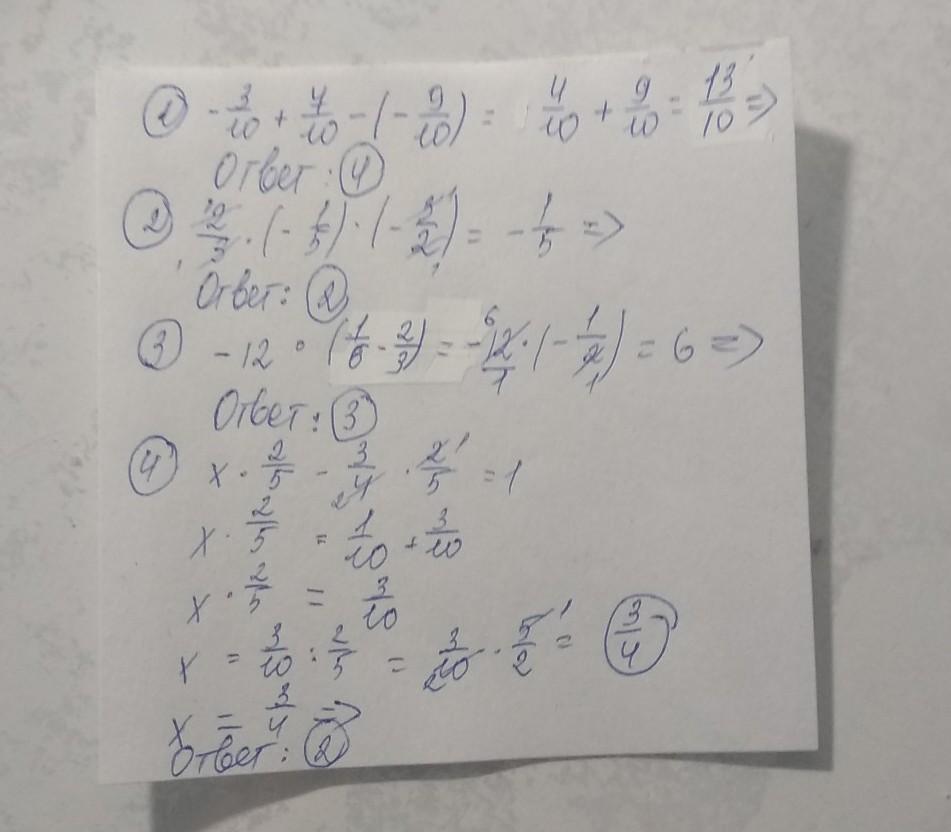 ① -3/10 + 7/10 - (- 9/10) = 4/10 + 9/10 = 13/10 =>
Ответ: ④
② 2/3 · (- 1/5) · (- 3/2) = - 1/5 =>
Ответ: ②
③ -12 · (1/6 - 2/3) = -12/1 · (- 1/2) = 6 =>
Ответ: ③
④ x · 2/5 - 3/4 · 2/5 = 1
x · 2/5 = 1/10 + 3/10
x · 2/5 = 3/10
x = 3/10 : 2/5 = 3/10 · 5/2 = 3/4
x = 3/4 =>
Ответ: ②